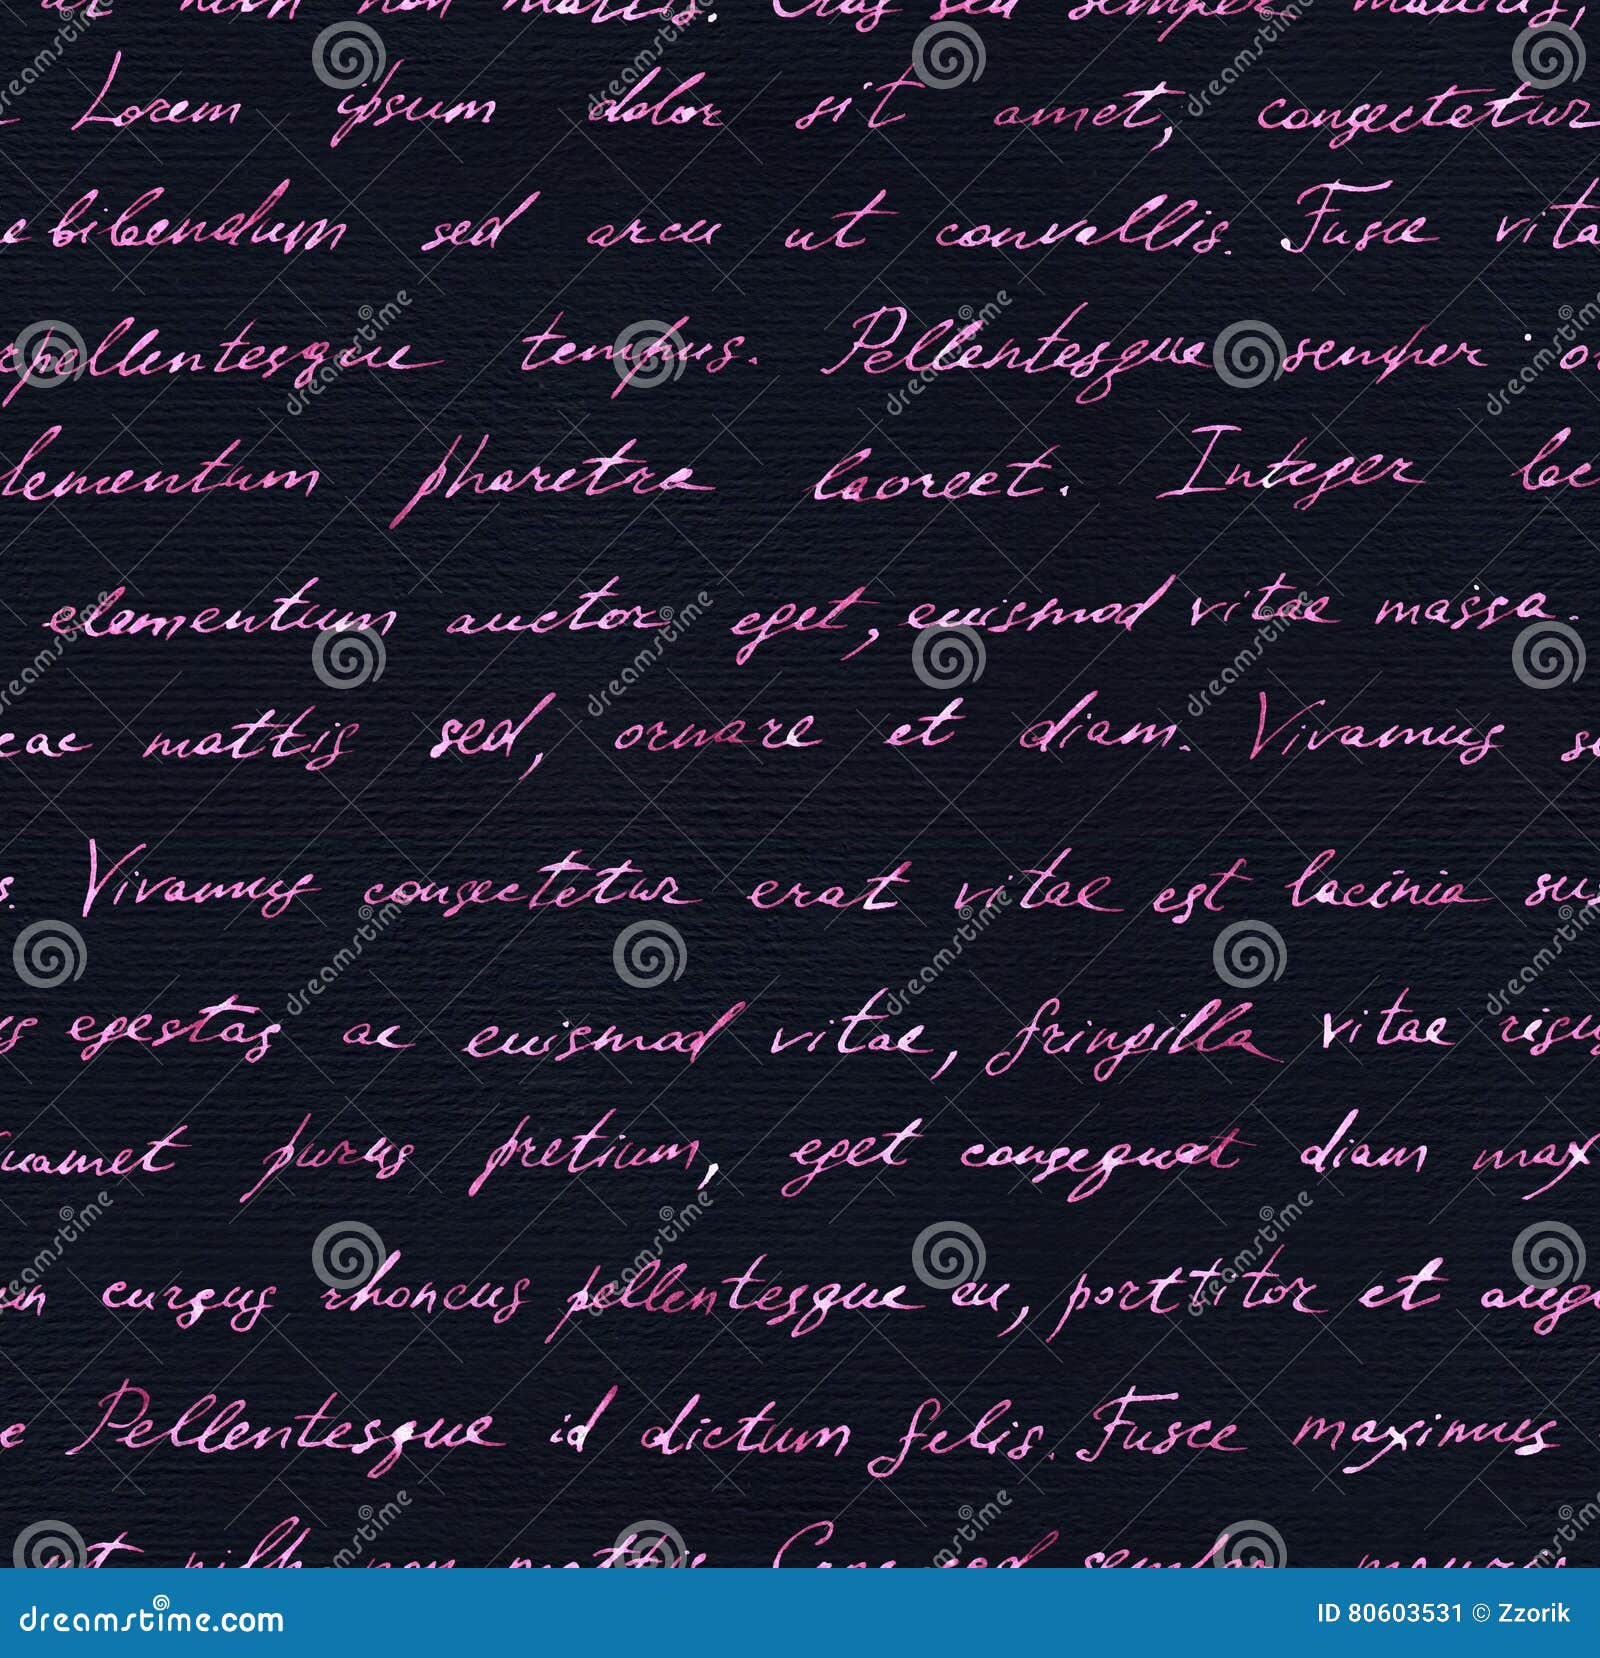 non mattis. Cras sed semper mauris,
Lorem ipsum dolor sit amet, consectetur
e bibendum sed arcu ut convallis. Fusce vita
pellentesque tempus. Pellentesque semper
lementum pharetra laoreet. Integer
elementum auctor eget, euismod vitae massa.
ac mattis sed, ornare et diam. Vivamus
s. Vivamus consectetur erat vitae est lacinia sus
egestas ac euismod vitae, fringilla vitae risus
amet purus pretium, eget consequat diam max
cursus rhoncus pellentesque eu, porttitor et aug
e Pellentesque id dictum felis. Fusce maximus
ut nibh non mattis. Cras sed semper mauris
dreamstime.com ID 80603531 © Zzorik